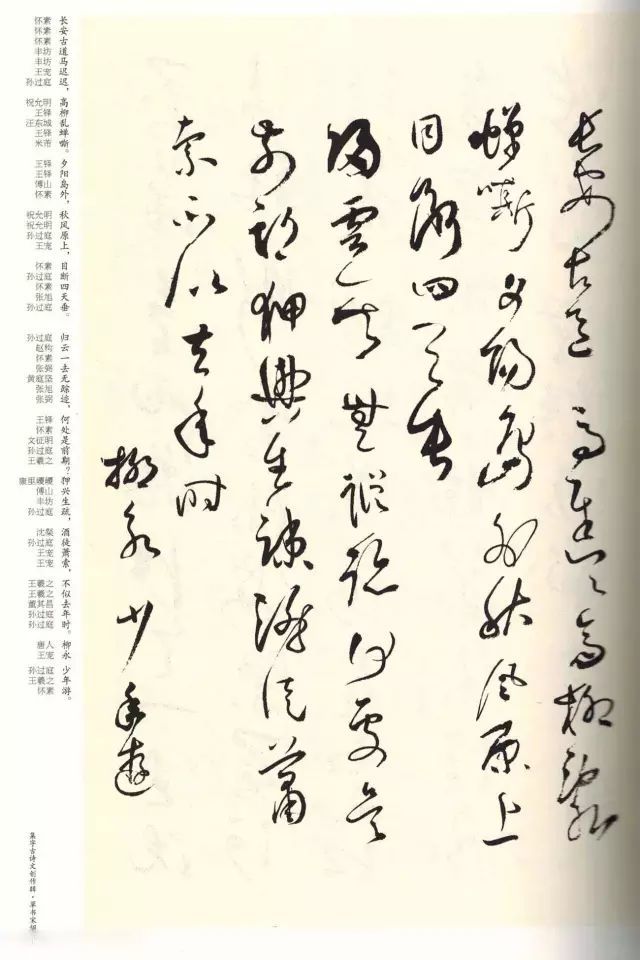 長安古道馬遲遲高柳亂
蟬嘶夕陽島外秋風原上
目斷四天垂
歸雲一去無蹤跡何處是
前期狎興生疎酒徒蕭
索不似去年時
柳永少年遊
怀素 长
怀素 安
怀素 古
丰坊 道
丰坊 马
王宠 迟
孙过庭 迟，
祝允明 高
王铎 柳
汪东城 乱
王铎 蝉
米芾 嘶。
王铎 夕
王铎 阳
傅山 岛
怀素 外，
祝允明 秋
祝允明 风
孙过庭 原
王宠 上，
怀素 目
孙过庭 断
怀素 四
张旭 天
孙过庭 垂。
孙过庭 归
赵构 云
怀素 一
张弼 去
黄庭坚 无
张旭 踪
张弼 迹，
王铎 何
怀素 处
文征明 是
孙过庭 前
王羲之 期？
康里巎巎 狎
傅山 兴
丰坊 生
孙过庭 疏，
沈粲 酒
孙过庭 徒
王宠 萧
王宠 索，
王羲之 不
王羲之 似
董其昌 去
孙过庭 年
孙过庭 时。
唐人 柳
王宠 永
孙过庭 少
王羲之 年
怀素 游。
集字古诗文创作辑·草书宋词